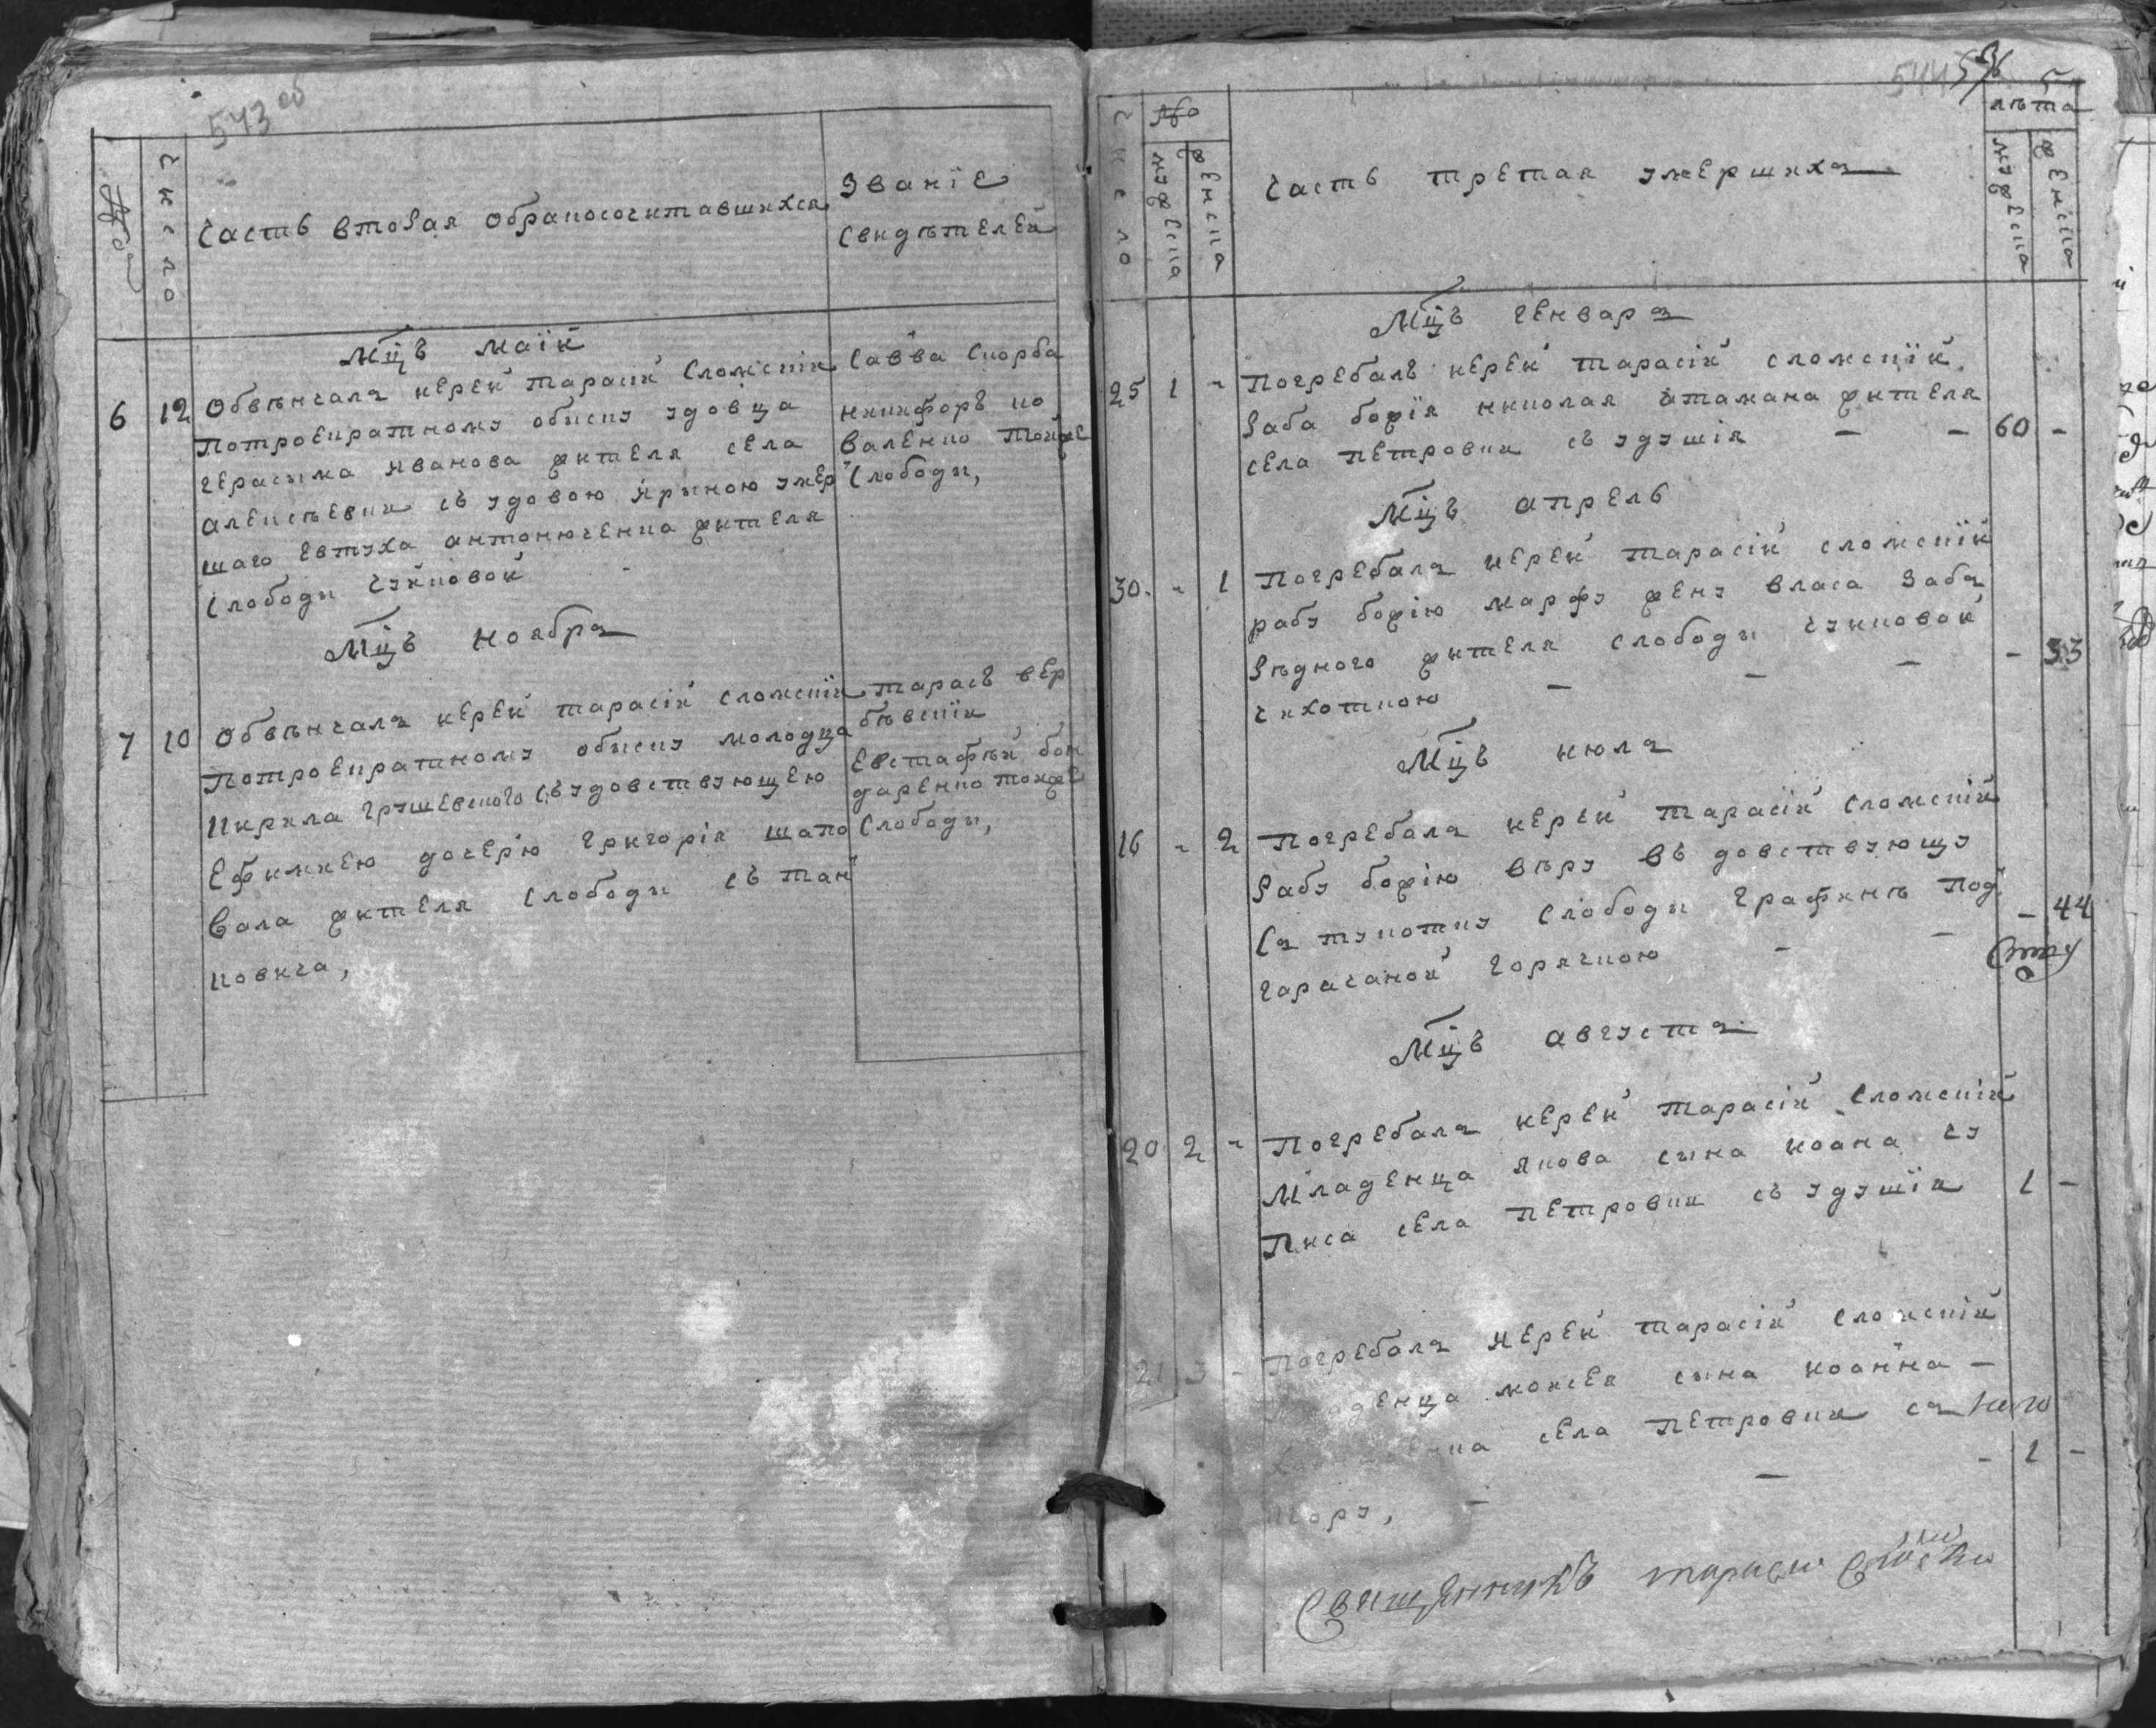 543 об
№
число
часть вторая обракосочитавшихся
Званїе
свидѣтелей
Мцъ маїй
6
12
Обвѣнчалъ иерей тарасїй сломскїй
потроекратному обиску удовца
герасима иванова жителя села
алексѣевки съ удовою яриною умер
шаго Евтуха антонюченка жителя
слободи чуйковой
Савва скорба
никифоръ ко
валенко тойже
слободи,
Мцъ ноябра
7
10
Обвѣнчалъ иерей тарасїй сломскїй
потроекратному обиску молодца
кирила грушевского съ удовствующею
Ефимиею дочерїю григорїя шапо
вала жителя слободи съ тан
ковича,
тарасъ вер
бѣвскїй
Евстафѣй бон
даренко тойже
слободи,
544
число
№
мужеска
женска
часть третая умершихъ
лѣта
мужеска
женска
Мцъ генвара
25
1
-
Погребалъ иерей тарасїй сломскїй
раба божїя николая атамана жителя
села петровки съ удушїя - -
60
-
Мцъ апрель
30.
-
1
Погребалъ иерей тарасїй сломскїй
рабу божїю марфу жену власа заба
рѣдного жителя слободи чуйковой
чихоткою - - -
-
33
Мцъ июла
16
-
2
Погребалъ иерей тарасїй сломскїй
рабу божїю вѣру въ довствующу
слободи графинѣ под
горачаной горячкою - -
-
44
Мцъ августа
20
2
-
Погребалъ иерей тарасїй сломскїй
младенца якова сына иоана чу
приса села петровки съ удушїя
1
-
21
3
-
Погребалъ иерей тарасїй сломскїй
младенца моисея сына иоанна -
села петровки съ
кору, - - -
1
-
Священникъ тарасий Сломский